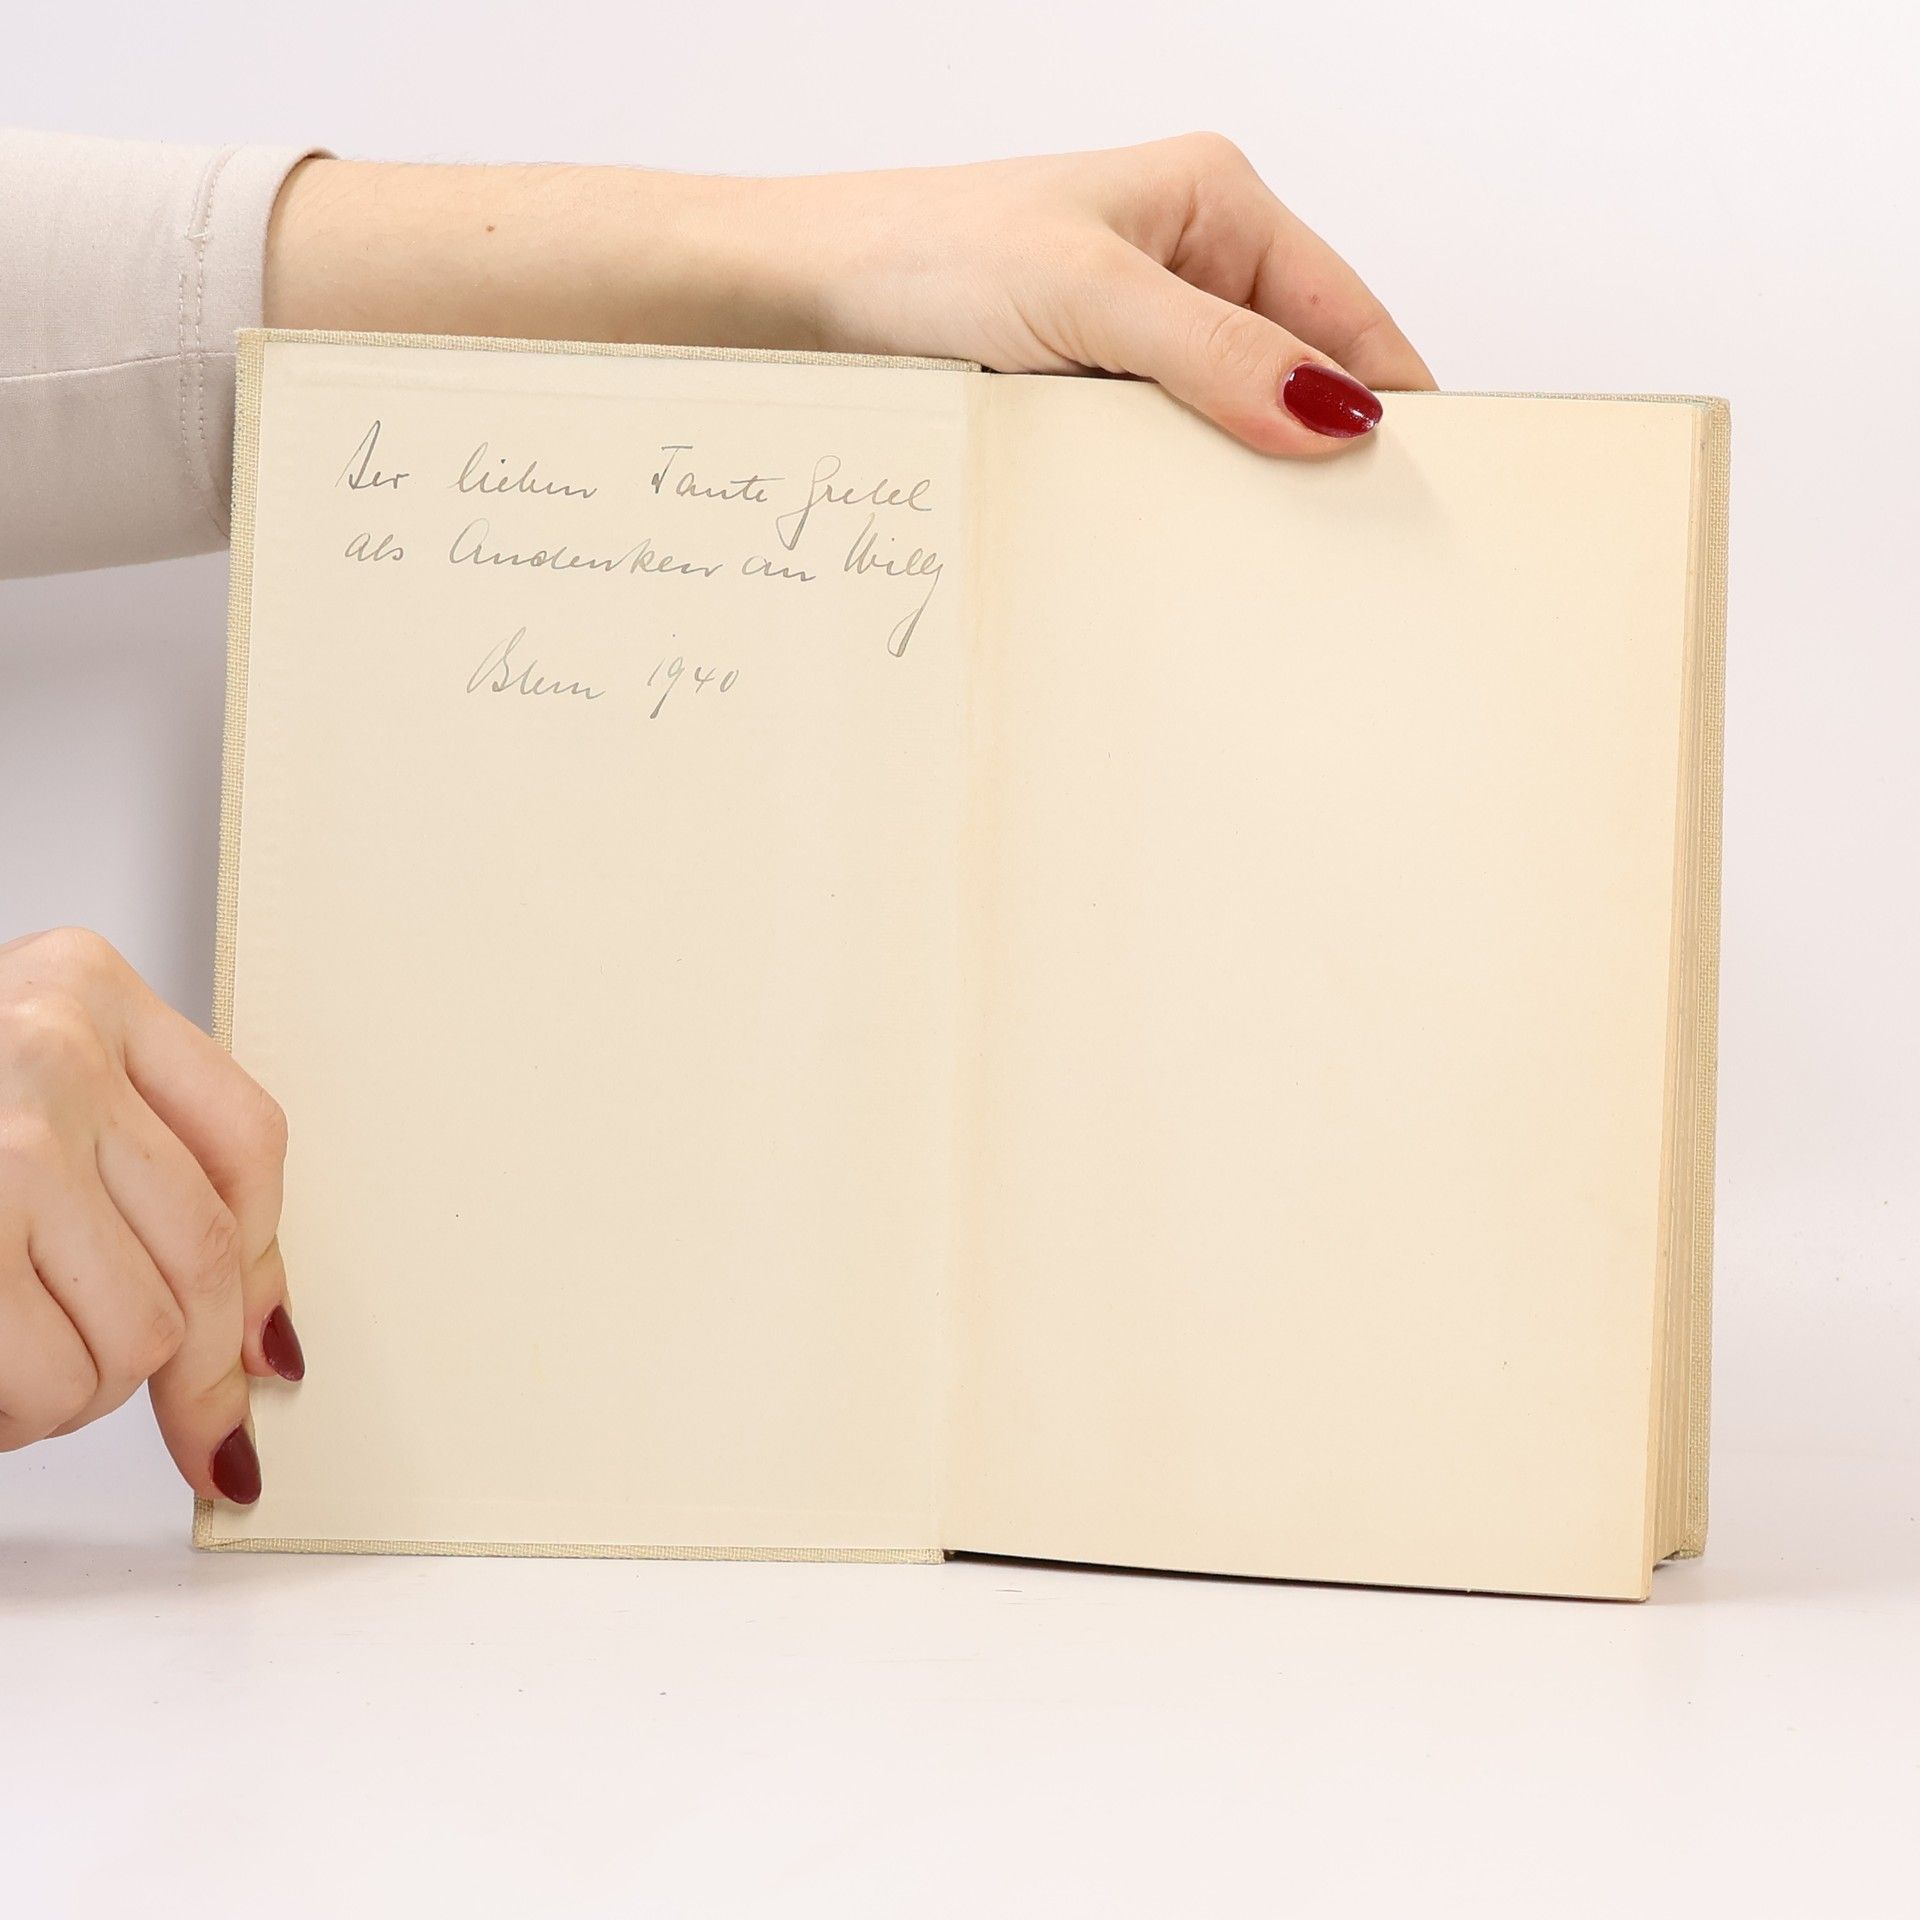 Der lieben Tante Gretel
als Andenken an Willy
1940